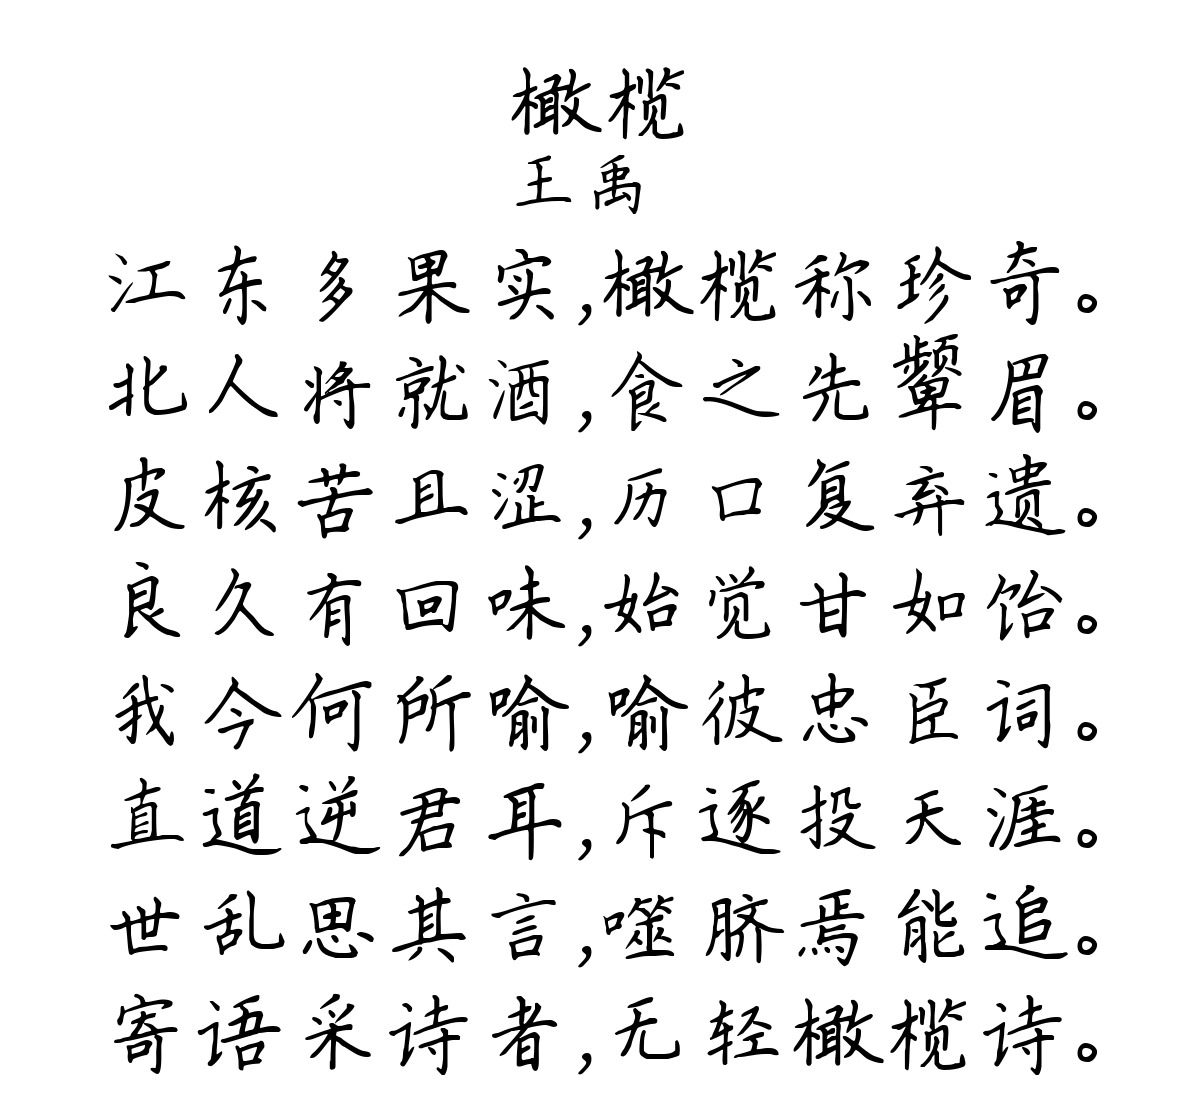 橄榄
王禹
江东多果实,橄榄称珍奇。
北人将就酒,食之先颦眉。
皮核苦且涩,历口复弃遗。
良久有回味,始觉甘如饴。
我今何所喻,喻彼忠臣词。
直道逆君耳,斥逐投天涯。
世乱思其言,噬脐焉能追。
寄语采诗者,无轻橄榄诗。